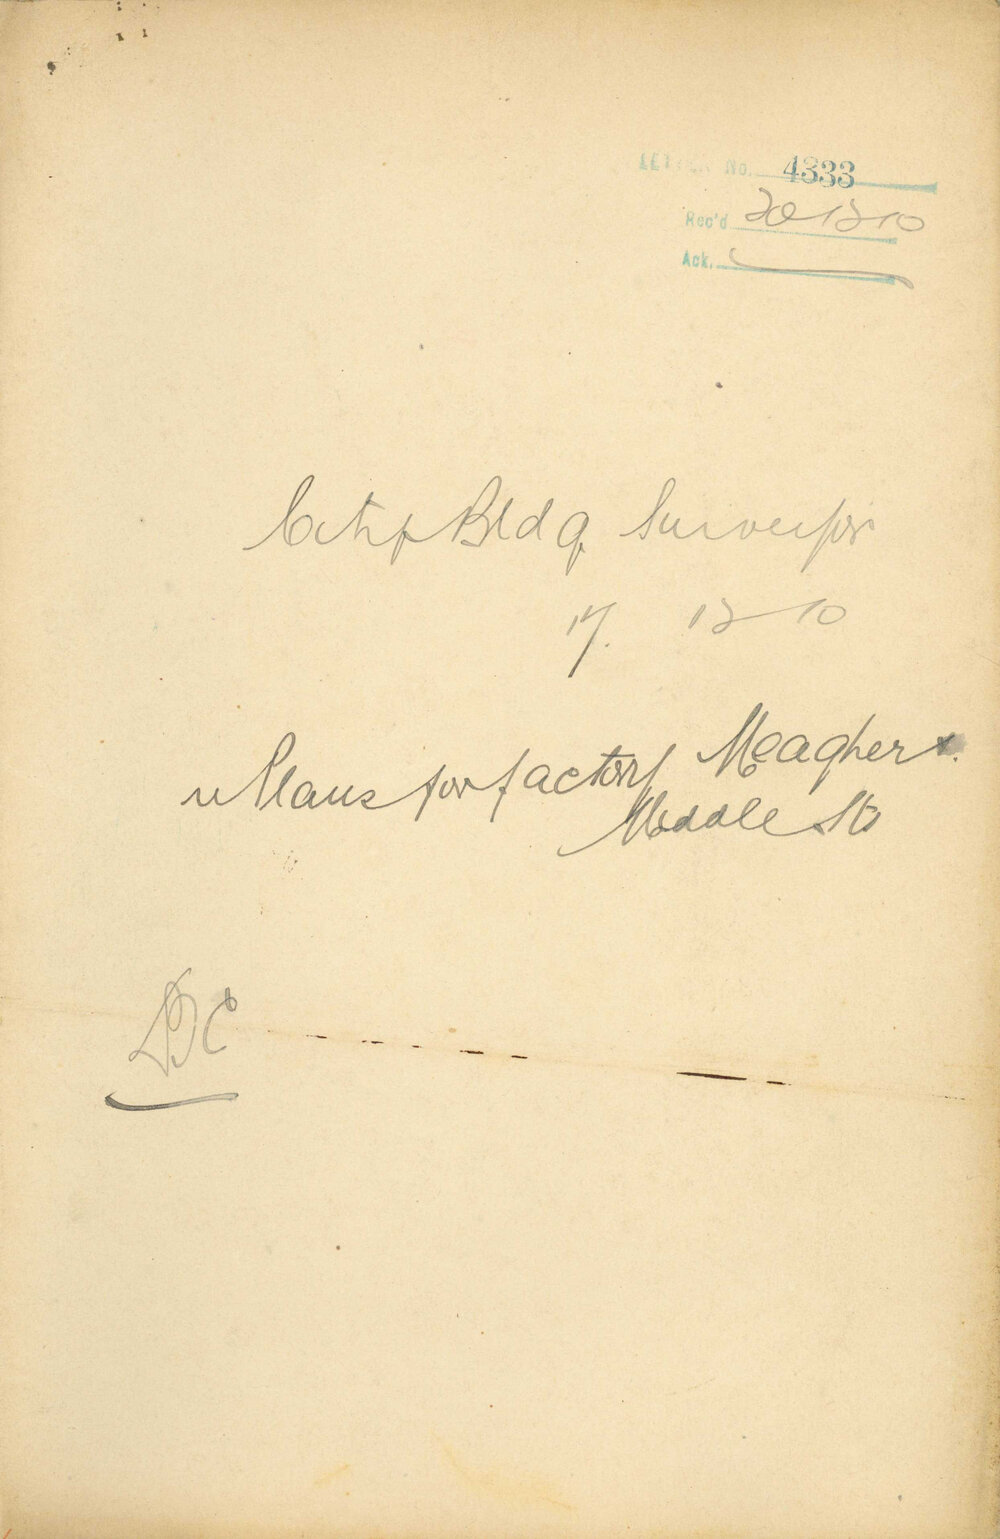 LETTER No. 4333
Rec'd 20 12 10
Ack.
City Bldg Surveyor
17. 12 10
Plans for factory Meagher &
Middle Sts